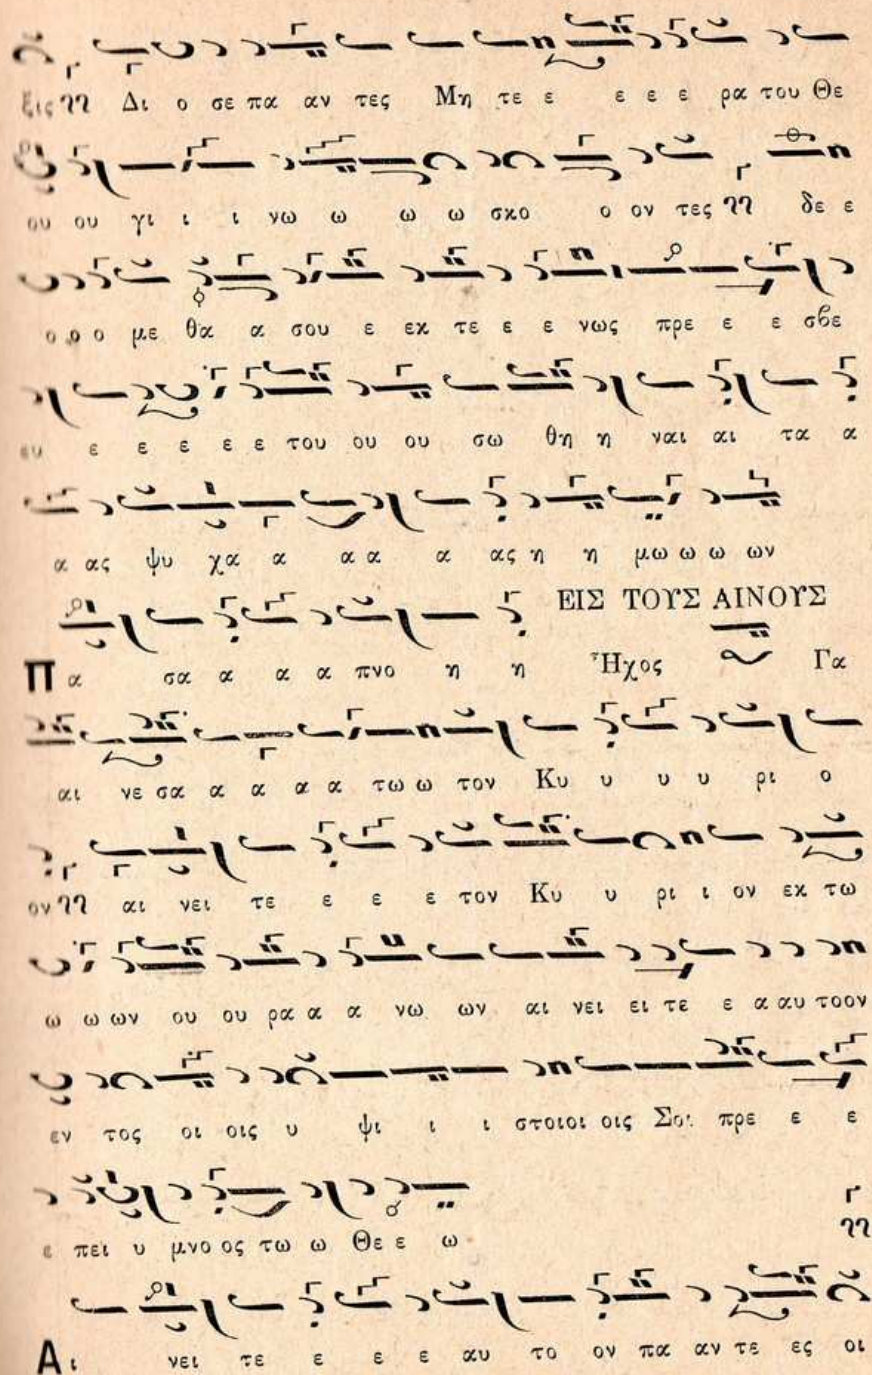 ξις Δι ο σε πα αν τες Μη τε ε ε ε ε ρα του Θε
ου ου γι ι ι νω ω ω ω σκο ο ον τες δε ε
ο ο ο με θα α σου ε εκ τε ε ε νως πρε ε ε σβε
ευ ε ε ε ε ε του ου ου σω θη η ναι αι τα α
α ας ψυ χα α α α α ας η η μω ω ω ων
ΕΙΣ ΤΟΥΣ ΑΙΝΟΥΣ
Πα σα α α α πνο η η Ἦχος Γα
αι νε σα α α α α τω ω τον Κυ υ υ υ ρι ο
ον αι νει τε ε ε ε τον Κυ υ ρι ι ον εκ τω
ω ω ων ου ου ρα α α νω ων αι νει ει τε ε α αυ τοον
εν τος οι οις υ ψι ι ι στοιοι οις Σοι πρε ε ε
ε πει υ μνο ος τω ω Θε ε ω
Αι νει τε ε ε ε αυ το ον πα αν τε ες οι